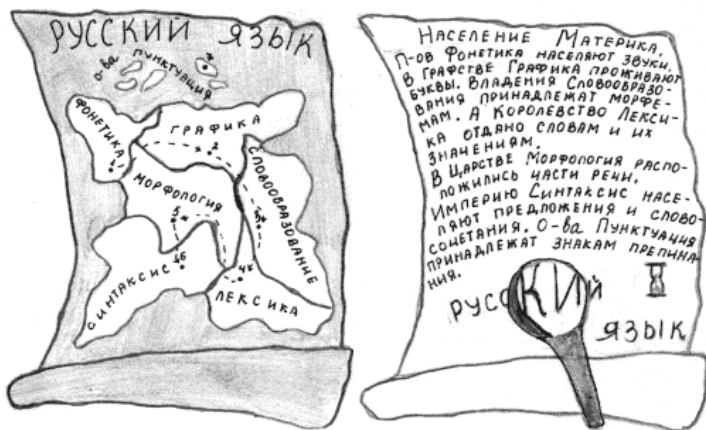 РУССКИЙ ЯЗЫК
О-ва ПУНКТУАЦИЯ
7
ФОНЕТИКА
1
ГРАФИКА
2
СЛОВООБРАЗОВАНИЕ
3
МОРФОЛОГИЯ
5
СИНТАКСИС
6
4
ЛЕКСИКА
НАСЕЛЕНИЕ МАТЕРИКА.
П-ОВ ФОНЕТИКА НАСЕЛЯЮТ ЗВУКИ.
В ГРАФСТВЕ ГРАФИКА ПРОЖИВАЮТ
БУКВЫ. ВЛАДЕНИЯ СЛОВООБРАЗО-
ВАНИЯ ПРИНАДЛЕЖАТ МОРФЕ-
МАМ. А КОРОЛЕВСТВО ЛЕКСИ-
КА ОТДАНО СЛОВАМ И ИХ
ЗНАЧЕНИЯМ.
В ЦАРСТВЕ МОРФОЛОГИЯ РАСПО-
ЛОЖИЛИСЬ ЧАСТИ РЕЧИ.
ИМПЕРИЮ СИНТАКСИС НАСЕ-
ЛЯЮТ ПРЕДЛОЖЕНИЯ И СЛОВО-
СОЧЕТАНИЯ. О-ва ПУНКТУАЦИЯ
ПРИНАДЛЕЖАТ ЗНАКАМ ПРЕПИНА-
НИЯ.
РУССКИЙ
ЯЗЫК